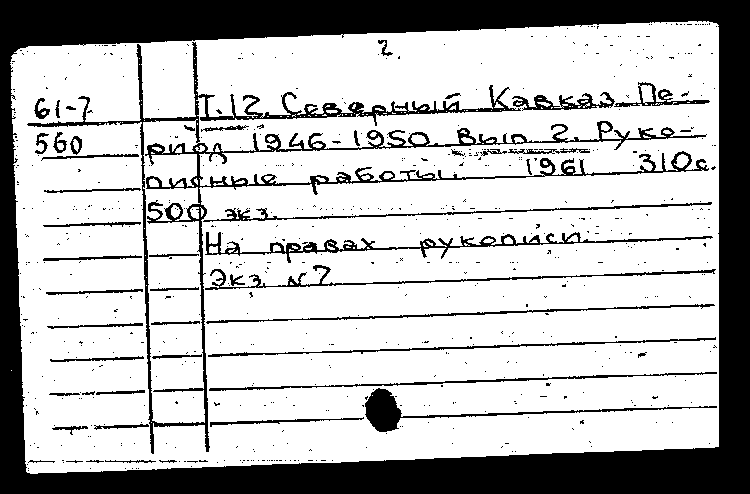 2
61-7 Т.12. Северный Кавказ. Пе-
560 риод 1946-1950. Вып. 2. Руко-
писные работы. 1961. 310с.
500 экз.
На правах рукописи.
Экз. №7